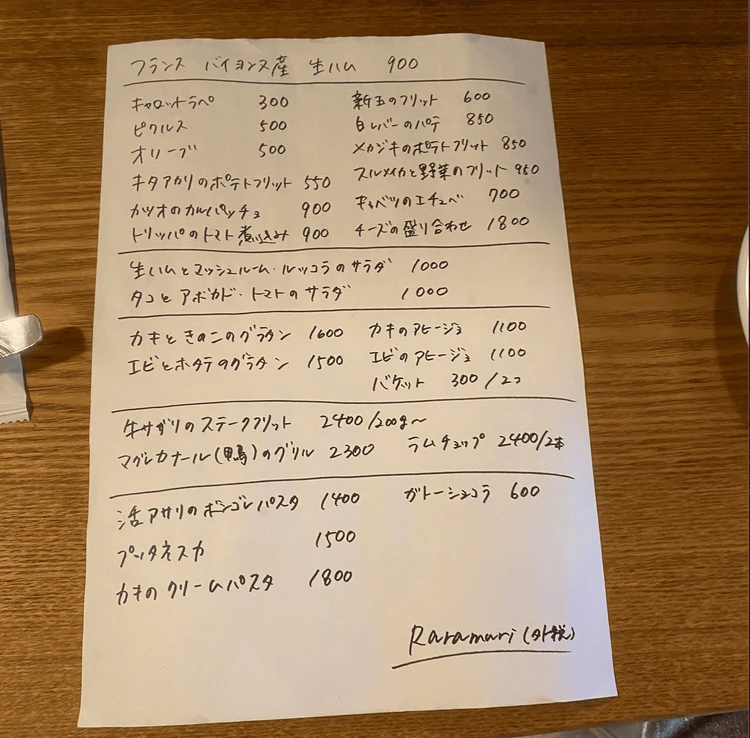 フランス バイヨンヌ産 生ハム 900
キャロットラペ 300
ピクルス 500
オリーブ 500
キタアカリのポテトフリット 550
カツオのカルパッチョ 900
トリッパのトマト煮込み 900
新玉のフリット 600
白レバーのパテ 850
メカジキのポテトフリット 850
スルメイカと野菜のフリット 950
キャベツのエチュベ 700
チーズの盛り合わせ 1800
生ハムとマッシュルーム・ルッコラのサラダ 1000
タコとアボカド・トマトのサラダ 1000
カキときのこのグラタン 1600
エビとホタテのグラタン 1500
カキのアヒージョ 1100
エビのアヒージョ 1100
バゲット 300/2コ
牛サガリのステークフリット 2400/200g〜
マグレカナール(鴨)のグリル 2300
ラムチョップ 2400/2本
活アサリのボンゴレパスタ 1400
プッタネスカ 1500
カキのクリームパスタ 1800
ガトーショコラ 600
Raramuri (外税)